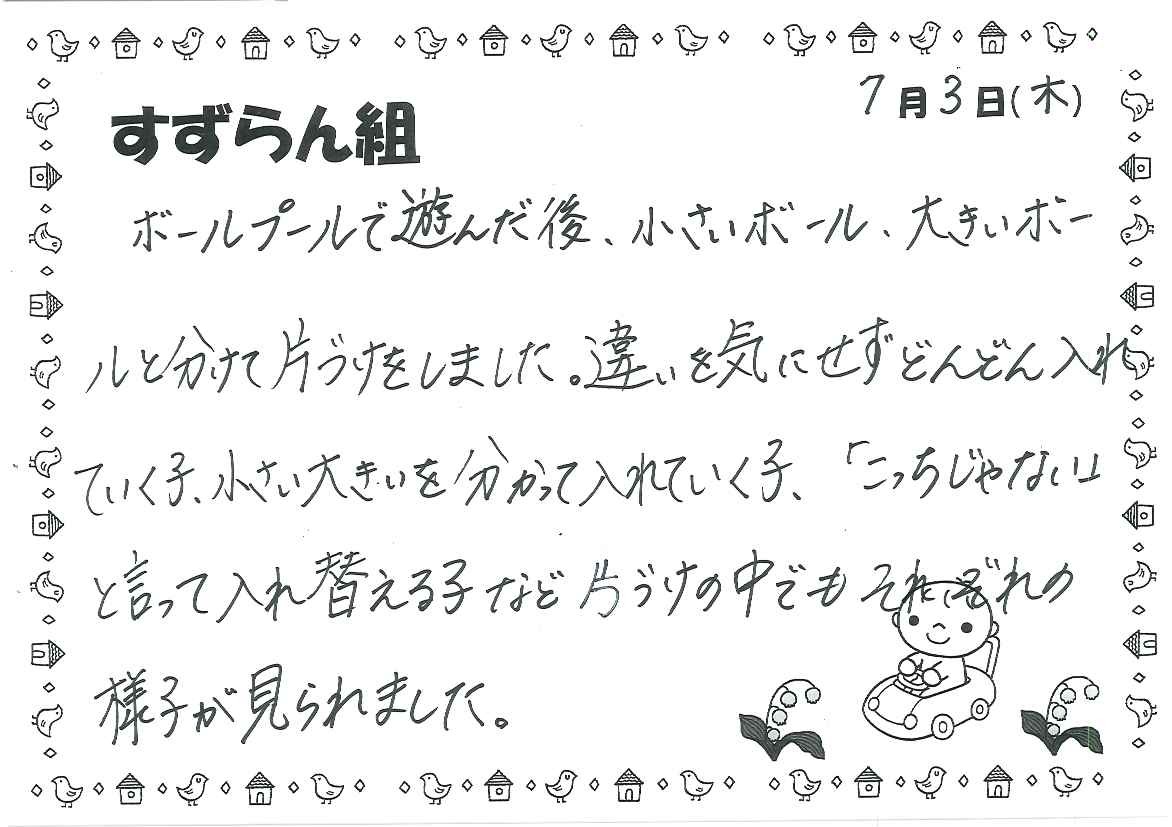 7月3日(木)
すずらん組
ボールプールで遊んだ後、小さいボール、大きいボー
ルと分けて片づけをしました。違いを気にせずどんどん入れ
ていく子、小さい大きいを分かって入れていく子、「こっちじゃない」
と言って入れ替える子など片づけの中でもそれぞれの
様子が見られました。